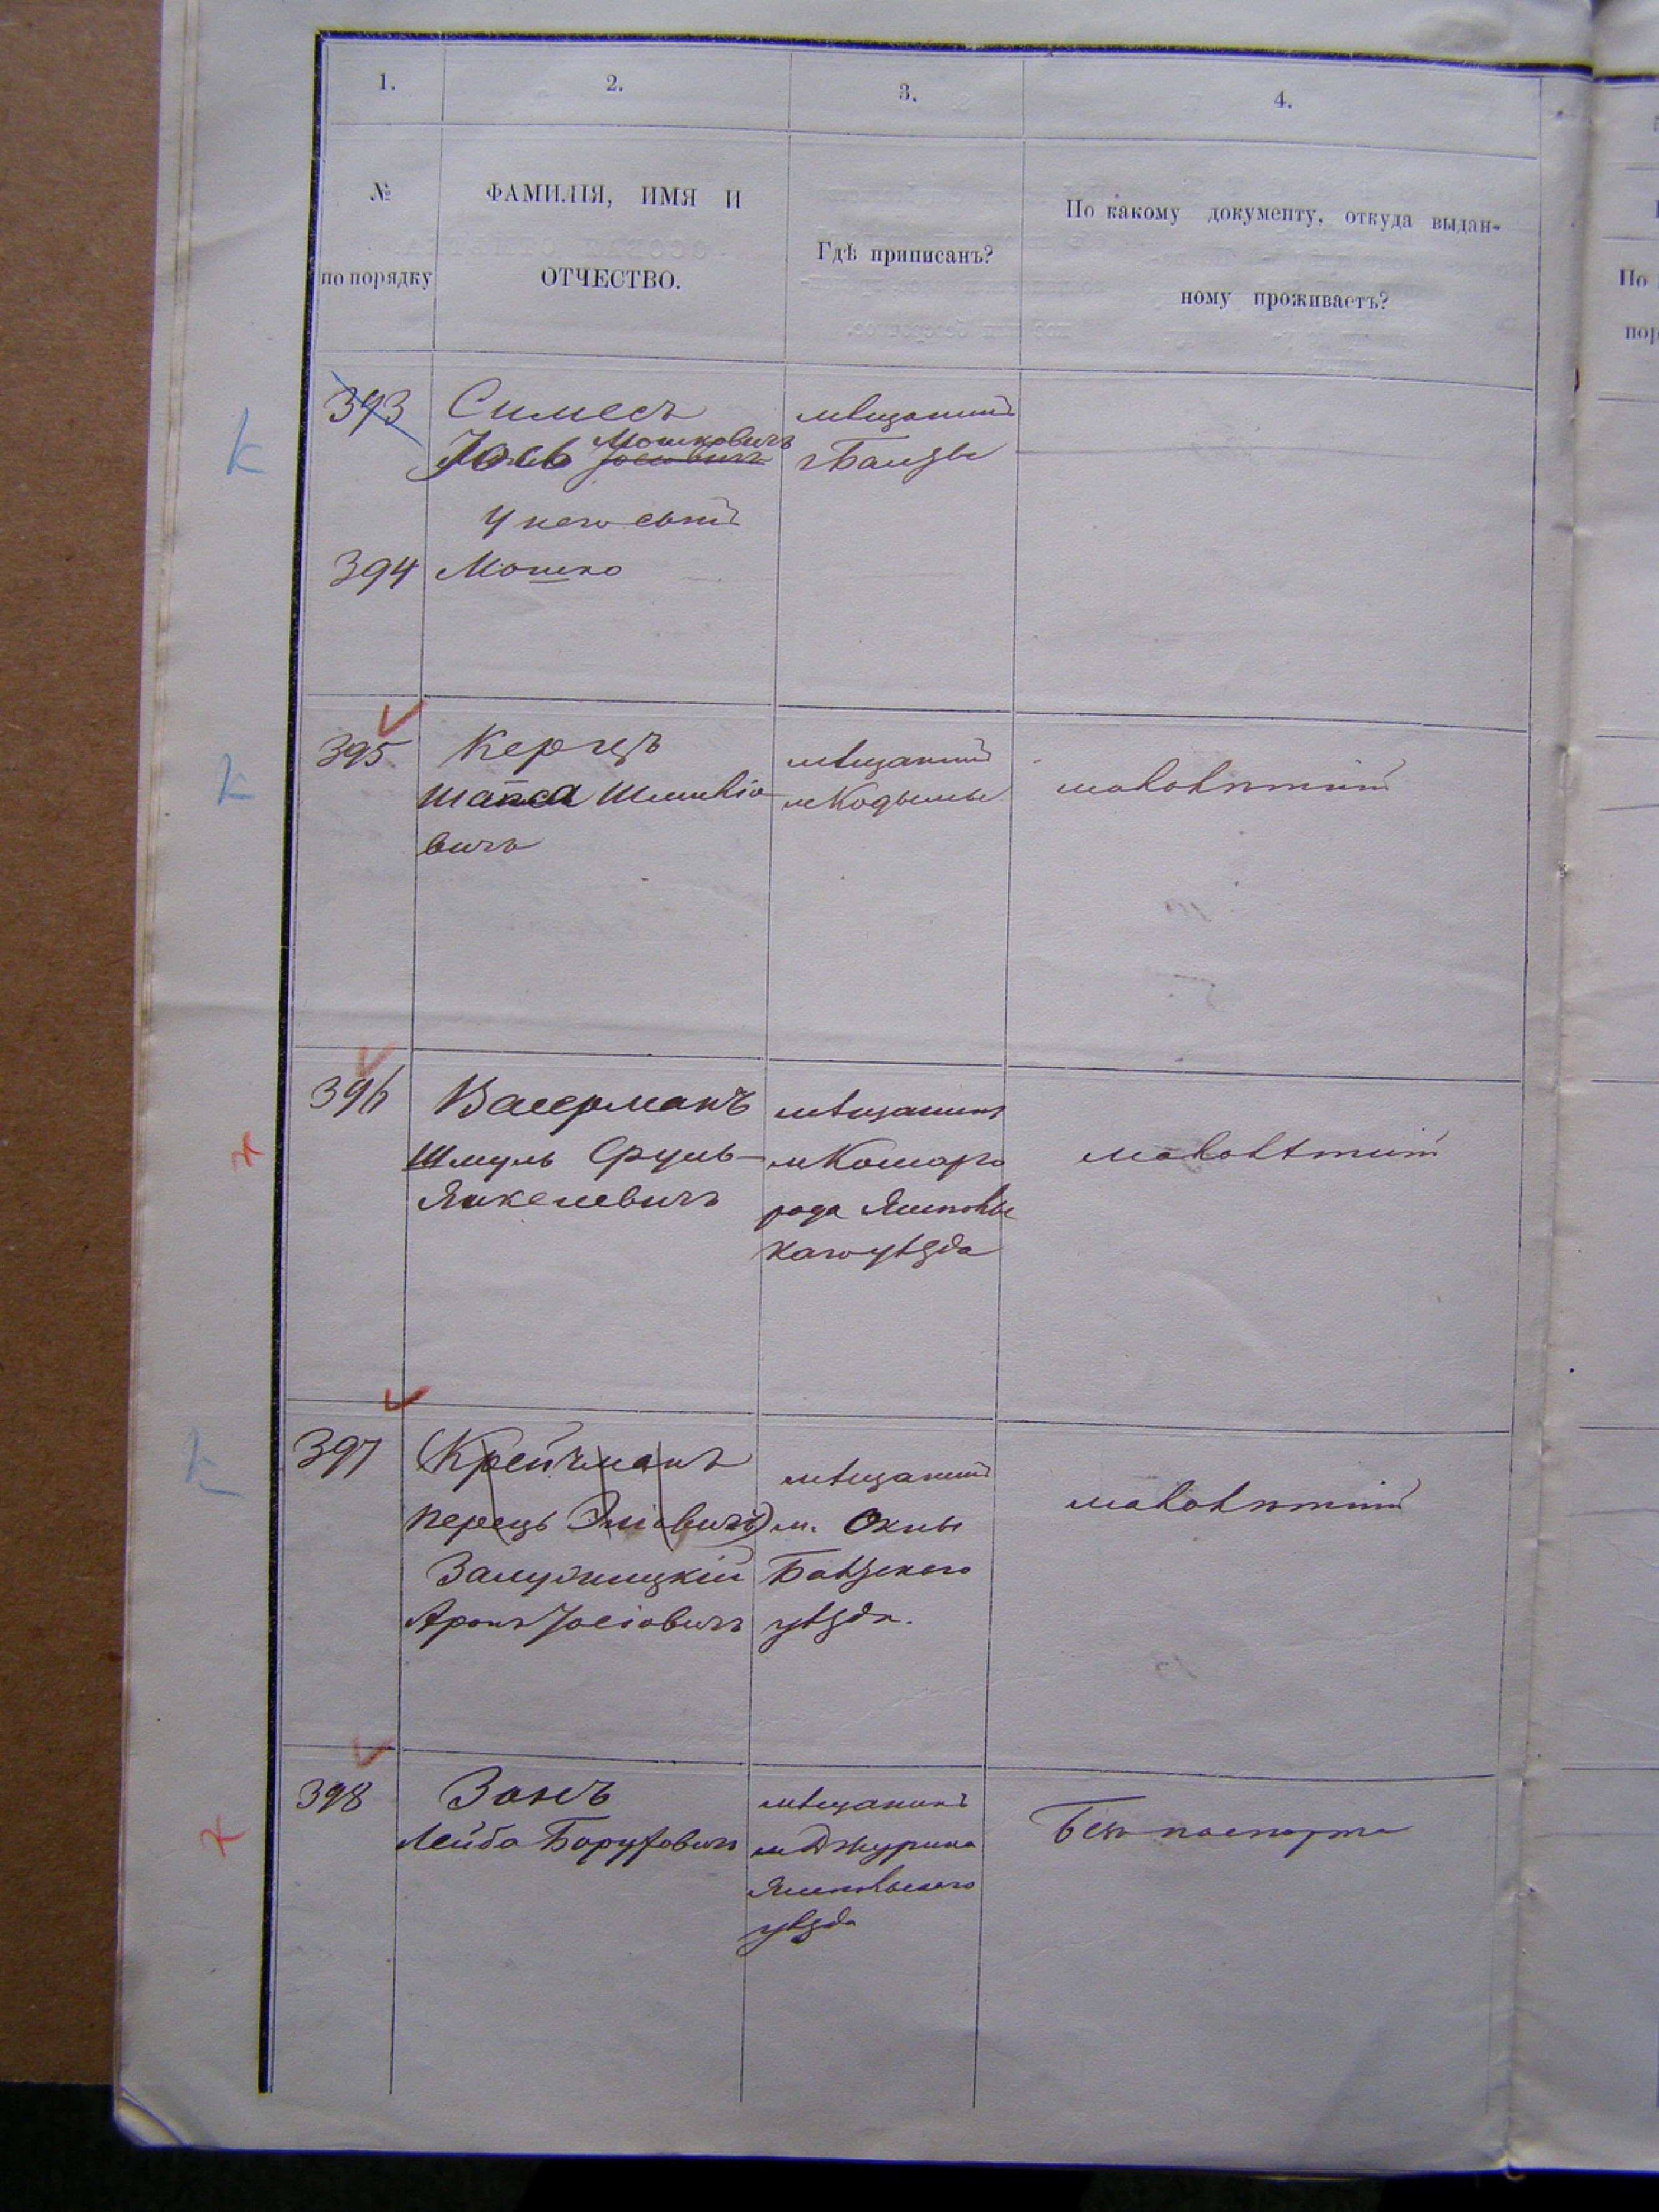 1.
2.
3.
4.
№
по порядку
ФАМИЛІЯ, ИМЯ И
ОТЧЕСТВО.
Гдѣ приписанъ?
По какому документу, откуда выдан-
ному проживаетъ?
393
Симесъ
Мошковичъ
Іось Іосіовичъ
мѣщанинъ
г Балты
У него сынъ
394
Мошко
К
395
Керецъ
Шапса Шлимвіо
вичъ
мѣщанинъ
м Кодымы
малолѣтній
К
396
Васерманъ
Шмуль Сруль-
Янкелевичъ
мѣщанинъ
м Комарго
рода Ямпольс
каго уѣзда
малолѣтній
397
(Крейчманъ
Перецъ Эліовичъ)
Залузницкій
Аронъ Іосіовичъ
мѣщанинъ
м. Окны
Балтскаго
уѣзда.
малолѣтній
К
398
Зонъ
Лейба Боруховичъ
мѣщанинъ
м Джурина
Ямпольскаго
уѣзда
Безъ паспорта
По
пор